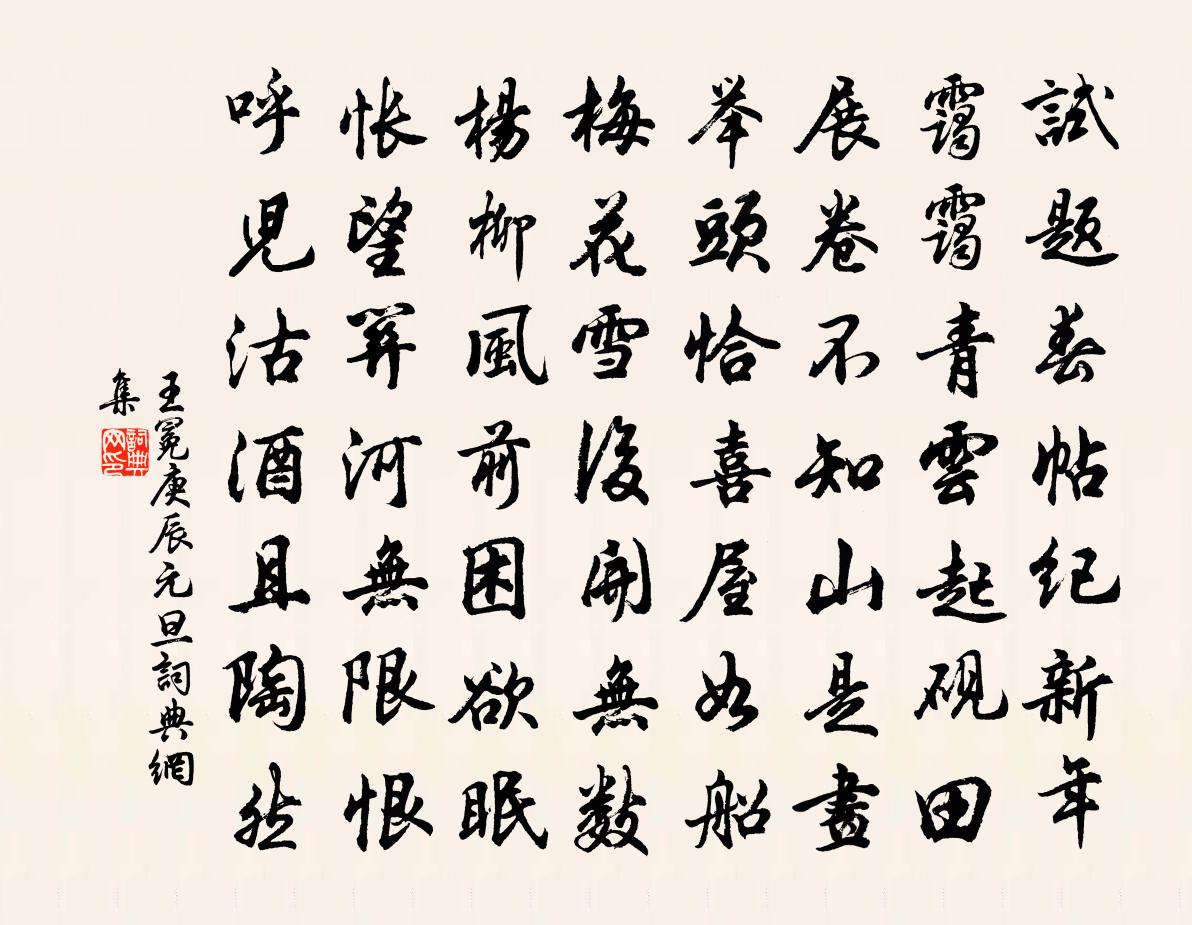 試題春帖紀新年
靄靄青雲起硯田
展卷不知山是畫
举頭恰喜屋如船
梅花雪後開無數
楊柳風前困欲眠
悵望關河無限恨
呼兒沽酒且陶然
王冕庚辰元旦詞典網
集
詞典网印